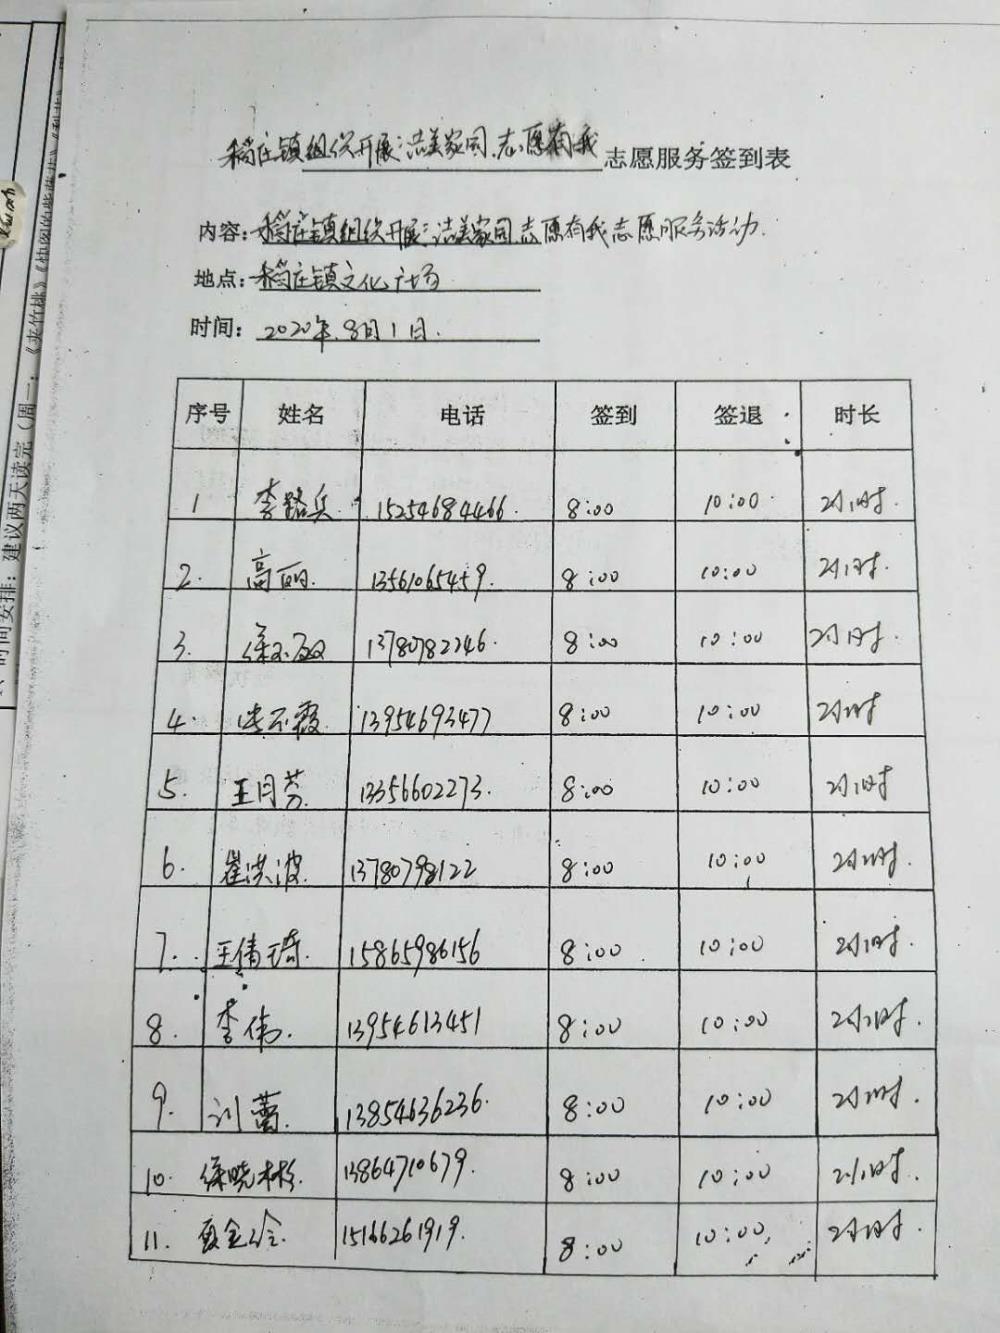 稻庄镇组织开展"洁美家园、志愿有我 志愿服务签到表
内容: 稻庄镇组织开展"洁美家园志愿有我志愿服务活动.
地点: 稻庄镇文化广场
时间: 2020年8月1日.
序号 姓名 电话 签到 签退 时长
1 李路兵 15254684466. 8:00 10:00 2小时.
2. 高丽. 13561065459. 8:00 10:00 2小时.
3. 13780782246. 8:00 10:00 2小时.
4. 13954693477 8:00 10:00 2小时
5. 王月芬. 13356602273. 8:00 10:00 2小时
6. 崔洪波. 13780798122 8:00 10:00 2小时.
7. 王倩琦. 15865986156 8:00 10:00 2小时.
8. 李伟. 13954613451 8:00 10:00 2小时.
9. 刘蕾. 13854636236. 8:00 10:00 2小时.
10. 徐晓彬. 13864710679. 8:00 10:00 2小时.
11. 15166261919. 8:00 10:00 2小时.
时间安排: 建议两天读完 (周一: 《夹竹桃》